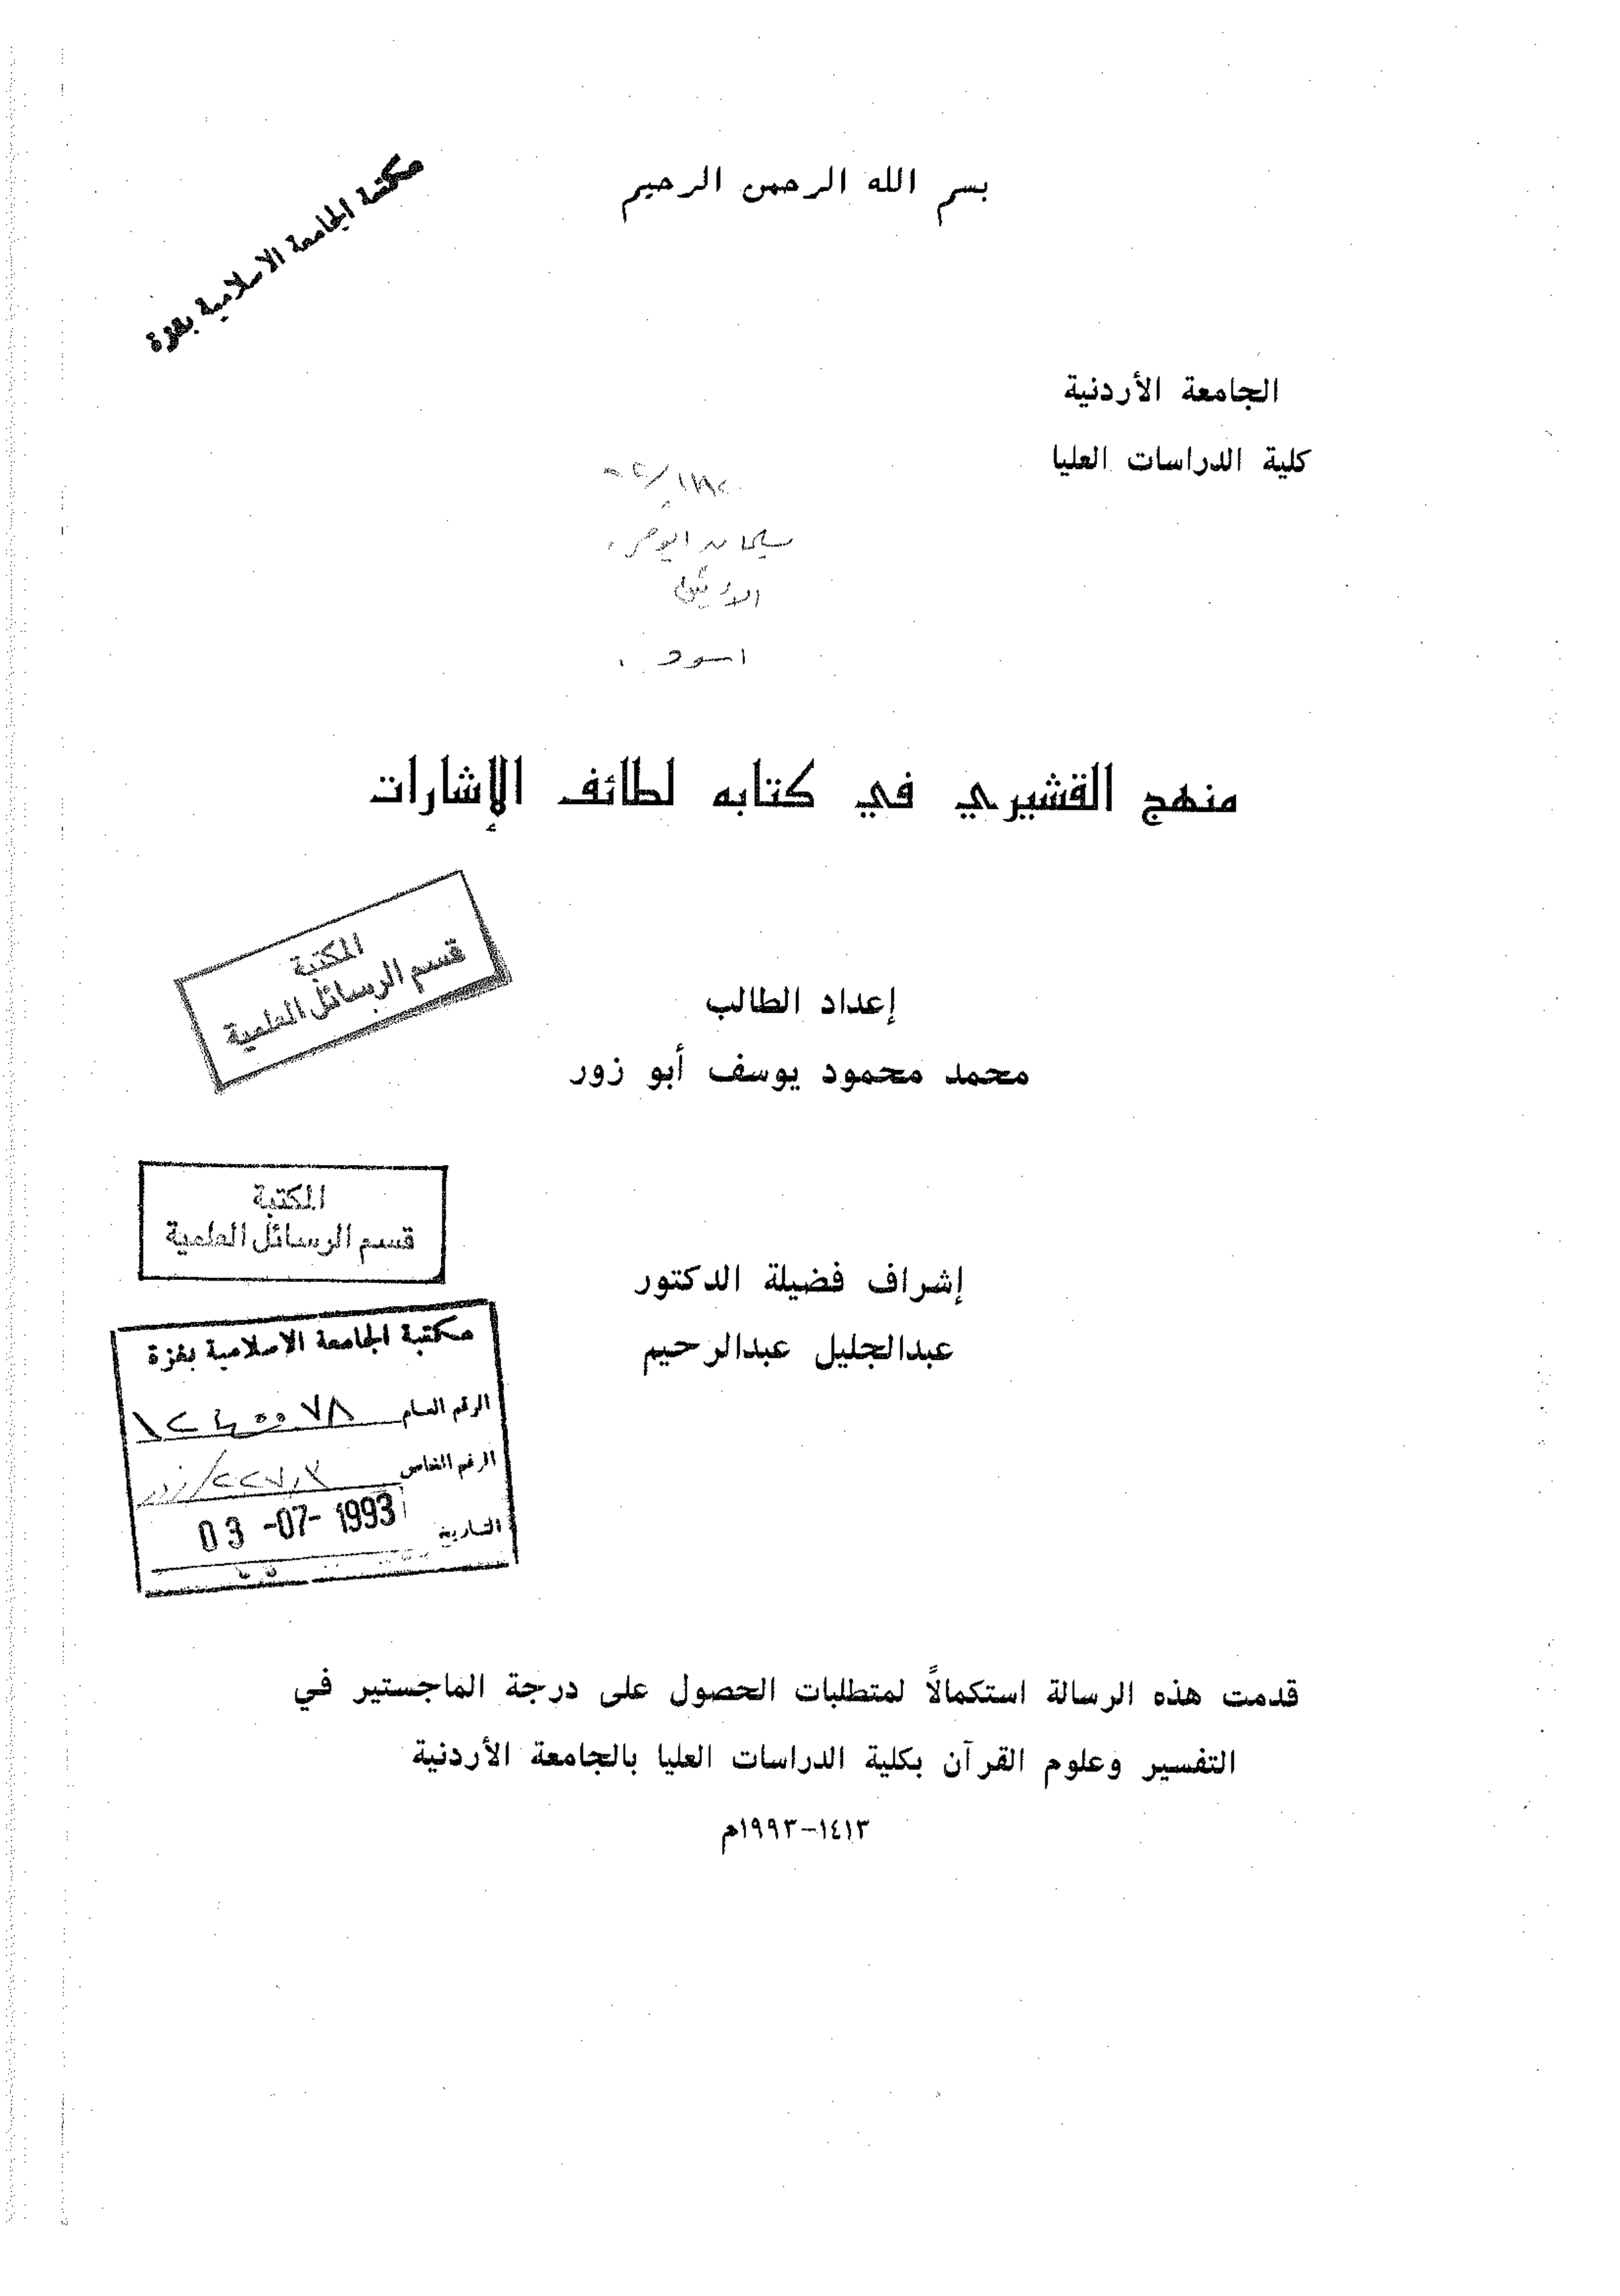 بسم الله الرحمن الرحيم
مكتبة الجامعة الاسلامية بغزة
الجامعة الأردنية
كلية الدراسات العليا
اسود
منهج القشيري في كتابه لطائف الإشارات
المكتبة
قسم الرسائل العلمية
إعداد الطالب
محمد محمود يوسف أبو زور
المكتبة
قسم الرسائل العلمية
إشراف فضيلة الدكتور
عبدالجليل عبدالرحيم
مكتبة الجامعة الاسلامية بغزة
الرقم العام
الرقم الخاص
التاريخ 03-07-1993
قدمت هذه الرسالة استكمالاً لمتطلبات الحصول على درجة الماجستير في
التفسير وعلوم القرآن بكلية الدراسات العليا بالجامعة الأردنية
١٤١٣-١٩٩٣م